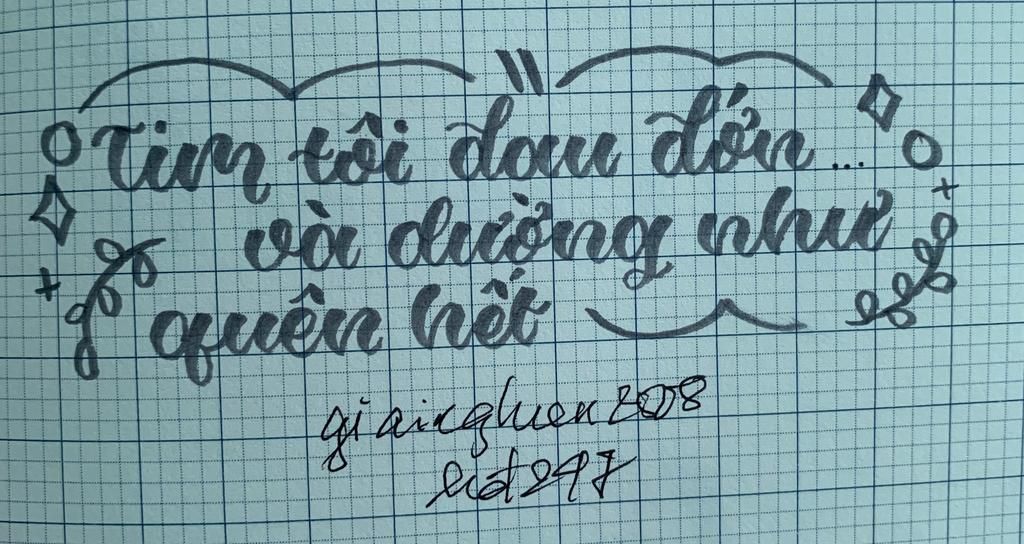 Tim tôi đau đớn...
và dường như
quên hết